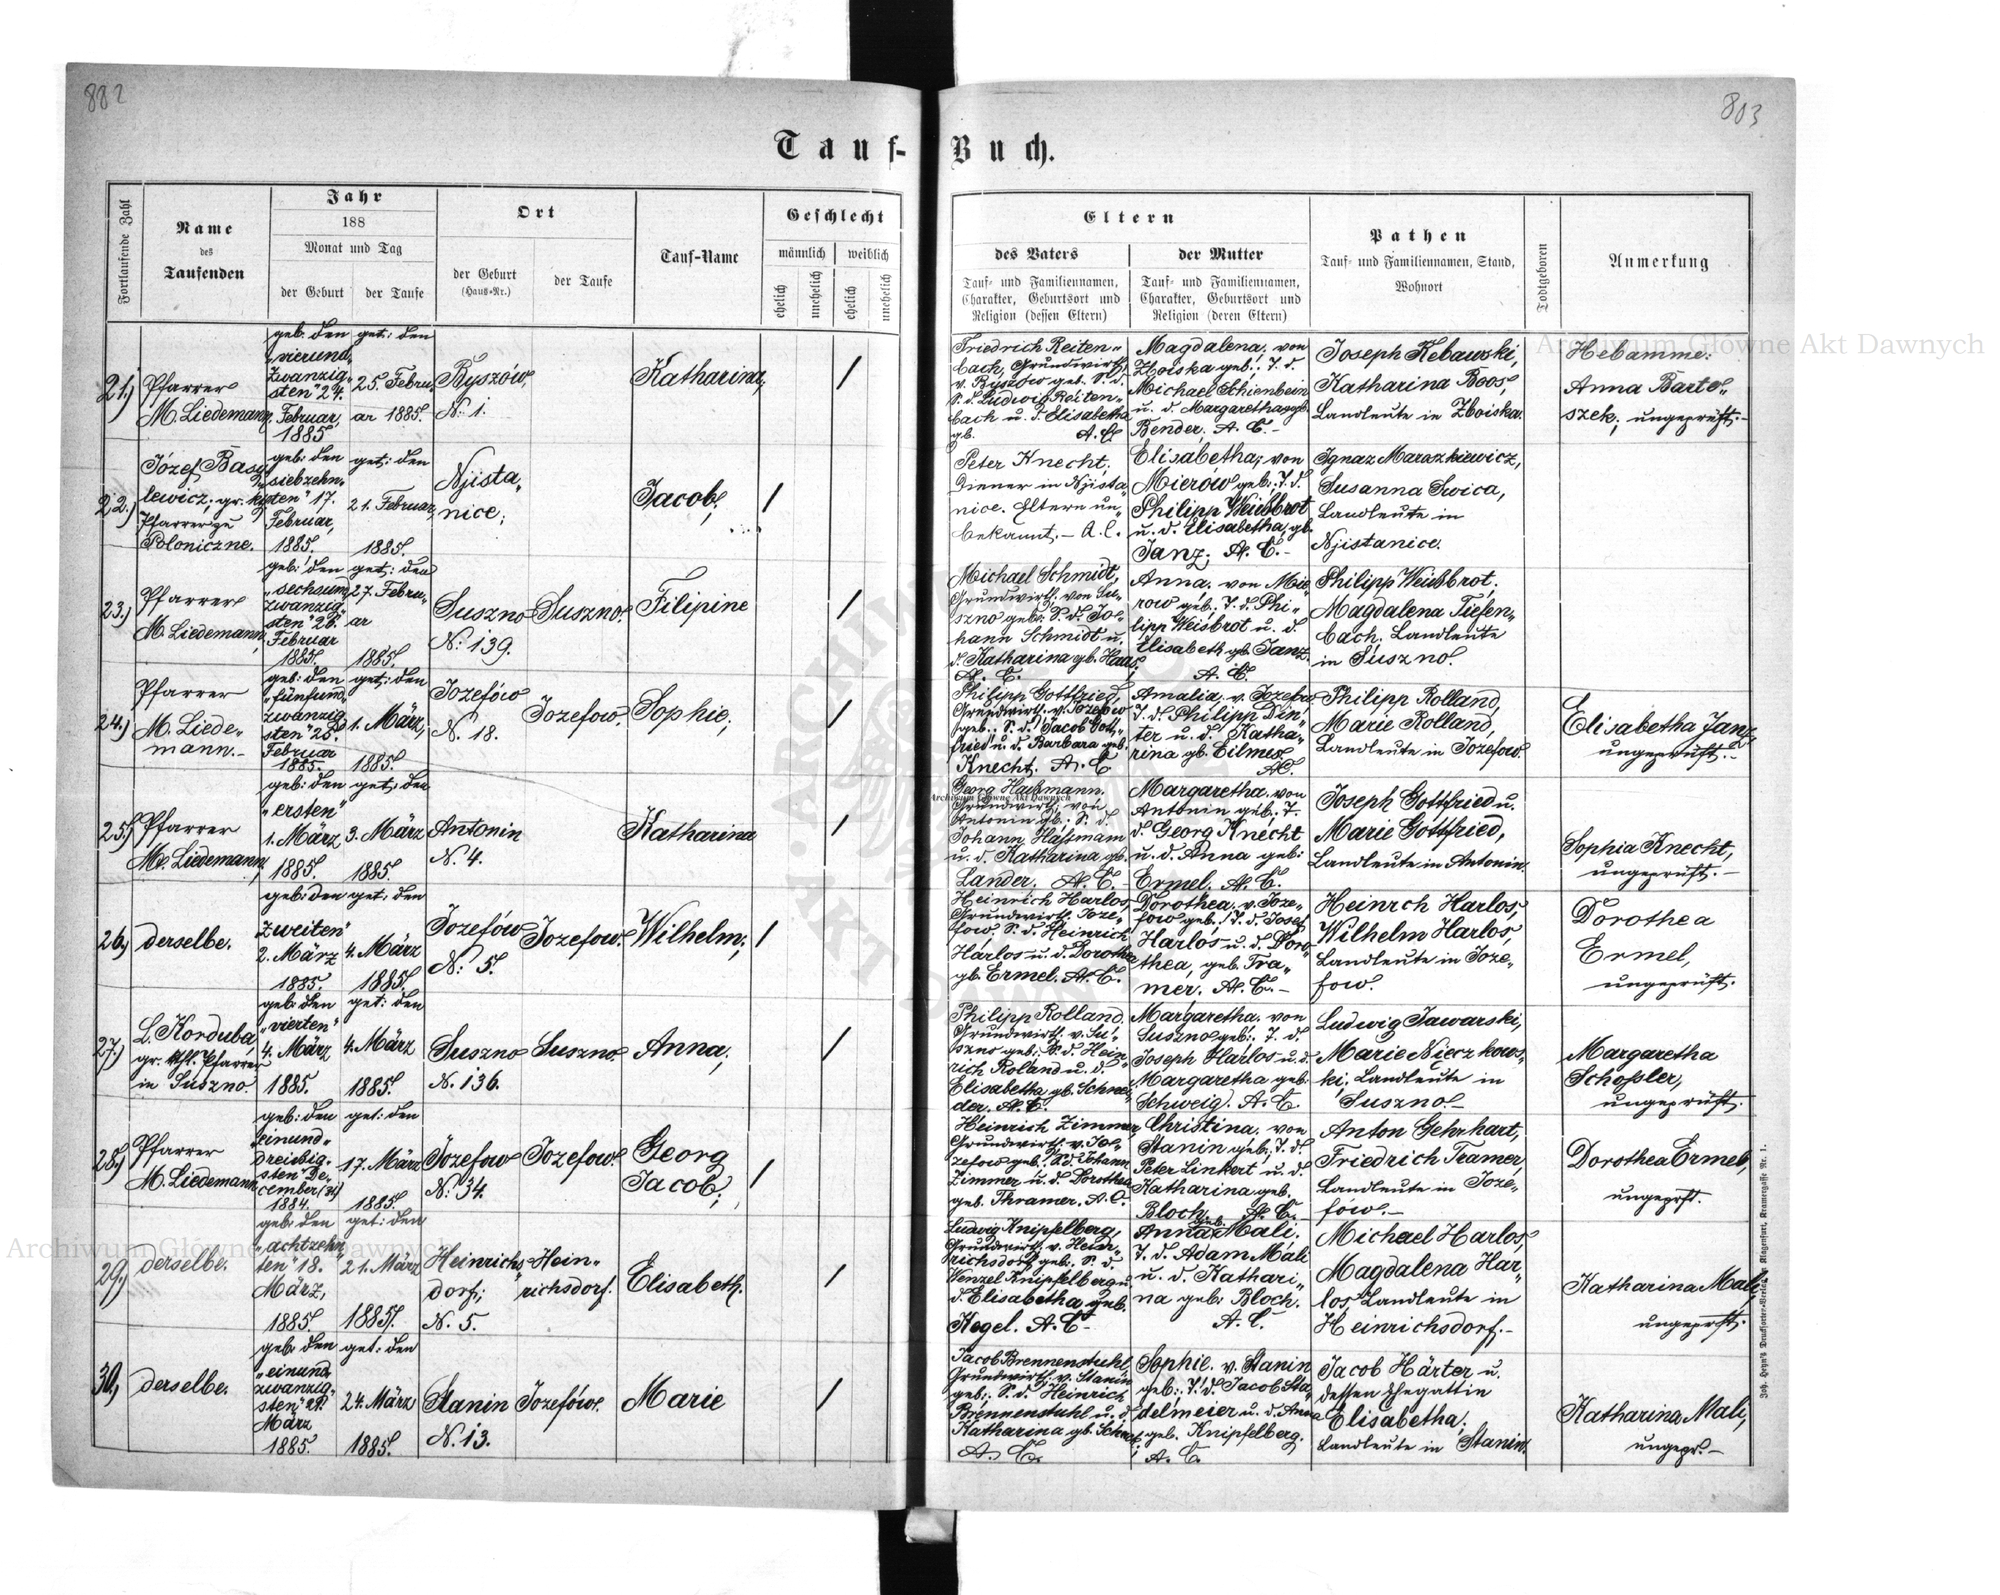 882
803
Tauf-
Buch.
Fortlaufende Zahl
Name
des
Taufenden
Jahr
188
Monat und Tag
der Geburt
der Taufe
Ort
der Geburt
(Haus-Nr.)
der Taufe
Tauf-Name
Geschlecht
männlich
weiblich
ehelich
unehelich
ehelich
unehelich
Eltern
des Vaters
Tauf- und Familiennamen,
Charakter, Geburtsort und
Religion (dessen Eltern)
der Mutter
Tauf- und Familiennamen,
Charakter, Geburtsort und
Religion (deren Eltern)
Pathen
Tauf- und Familiennamen, Stand,
Wohnort
Todtgeboren
Anmerkung
21.)
Pfarrer
M. Liedemann,
geb. den
„vierund„
zwanzig„
sten" 24.
Februar,
1885
get: den
25. Febru„
ar 1885.
Ryszów,
N: 1.
Katharina,
/
Friedrich Reiten„
bach, Grundwirth,
v. Ryszów geb. S. d.
S. d. Ludwig Reiten„
bach u. d. Elisabetha
gb. A. C.
Magdalena, von
Zboiska geb.: T. d.
Michael Schienbein
u. d. Margaretha geb.
Bender, A. C. -
Joseph Kebawski,
Katharina Boos,
Landleute in Zboiska.
Hebamme:
Anna Barto„
szek; ungeprüft. -
22.)
Józef Basy„
lewicz, gr. k.
Pfarrer zu
Poloniczne.
geb: den
„siebzehn„
ten" 17.
Februar,
1885.
get: den
21. Februar,
1885.
Njista„
nice;
Jacob,
/
Peter Knecht,
Diener in Njista„
nice. Eltern un„
bekannt. - A. C.
Elisabetha, von
Mierów geb.: T. d.
Philipp Weißbrot
u. d. Elisabetha, gb.
Janz, A. C. -
Ignaz Maraszkiewicz,
Susanna Swica,
Landleute in
Njistanice.
23.)
Pfarrer
M. Liedemann,
geb: den
„sechsund„
zwanzig„
sten" 26.
Februar
1885.
get: den
27. Febru„
ar
1885.
Suszno
N: 139.
Suszno.
Filipine
/
Michael Schmidt,
Grundwirth. von Su„
szno geb: S. d. Jo„
hann Schmidt u.
d. Katharina gb. Haas,
A. C.
Anna, von Mie„
row geb.; T. d. Phi„
lipp Weisbrot u. d.
Elisabeth gb. Janz.
A. C.
Philipp Weißbrot,
Magdalena Tiefen„
bach, Landleute
in Suszno.
24.)
Pfarrer
M. Liede„
mann. -
geb: den
„fünfund„
zwanzig
sten" 25.
Februar
1885.
get: den
1. März,
1885.
Jozefów
N. 18.
Jozefow.
Sophie,
/
Philipp Gottfried,
Grundwirth. v. Jozefow
geb.: S. d. Jacob Gott„
fried u. d. Barbara geb.
Knecht. A. C
Amalia, v. Jozefow
T. d. Philipp Din„
ter u. d. Katha„
rina gb. Eilmes
AC.
Philipp Rolland,
Marie Rolland,
Landleute in Jozefow.
Elisabetha Janz,
ungeprüft. -
25.)
Pfarrer
M. Liedemann,
geb: den
„ersten"
1. März
1885.
get: den
3. März
1885.
Antonin
N. 4.
Katharina
/
Georg Haßmann.
Grundwirt; von
Antonin gb.: S. d.
Johann Haßmann
u. d. Katharina gb.
Lander. A. C. -
Margaretha, von
Antonin geb.; T.
d. Georg Knecht
u. d. Anna geb:
Ermel. A. C.
Joseph Gottfried u.
Marie Gottfried,
Landleute in Antonin.
Sophia Knecht,
ungeprüft. -
26.)
derselbe.
geb: den
zweiten"
2. März
1885.
get: den
4. März
1885.
Jozefów
N: 5.
Jozefow.
Wilhelm,
/
Heinrich Harlos,
Grundwirth. Joze„
fow, S. d. Heinrich
Harlos u. d. Dorothea
gb. Ermel. A. C.
Dorothea, v. Joze„
fow geb.; T. d. Josef
Harlos u. d. Doro„
thea, geb. Tra„
mer. A. C. -
Heinrch Harlos,
Wilhelm Harlos,
Landleute in Joze„
fow.
Dorothea
Ermel,
ungeprüft.
27.)
L. Korduba,
gr. kath. Pfarrer
in Suszno.
geb: den
„vierten"
4. März
1885.
get: den
4. März
1885.
Suszno
N. 136.
Suszno.
Anna,
/
Philipp Rolland.
Grundwirth. v. Su„
szno geb: S. d. Hein„
rich Roland u. d.
Elisabetha gb. Schnei„
der. A. C.
Margaretha, von
Suszno geb.: T. d.
Joseph Harlos u. d.
Margaretha geb:
Schweig. A. C.
Ludwig Jawarski,
Marie Nieczkows„
ki, Landleute in
Suszno. -
Margaretha
Schoßler,
ungeprüft.
28.)
Pfarrer
M. Liedemann,
geb: den
„einund„
dreißig„
sten" De„
cember (31)
1884.
get: den
17. März
1885.
Jozefow
N: 34.
Jozefow.
Georg
Jacob;
/
Heinrich Zimmer,
Grundwirth. v. Jo„
zefow geb.: S. d. Johann
Zimmer u. d. Dorothea
geb. Thramer. A. C.
Christina, von
Stanin geb.; T. d.
Peter Linkert u. d.
Katharina geb.
Bloch. A. C. -
Anton Gehrhart,
Friedrich Tramer,
Landleute in Joze„
fow. -
Dorothea Ermel,
ungeprft.
29.)
derselbe.
geb: den
„achtzehn„
ten" 18.
März,
1885.
get: den
21. März
1885.
Heinrichs„
dorf;
N. 5.
Hein„
richsdorf.
Elisabeth.
/
Ludwig Knipfelberg,
Grundwirth. v. Hein„
richsdorf, geb: S. d.
Wenzel Knipfelberg u.
d. Elisabetha geb.
Kegel. A. C -
geb.
Anna Mali.
T. d. Adam Mali
u. d. Kathari„
na geb: Bloch.
A. C.
Michael Harlos,
Magdalena Har„
los, Landleute in
Heinrichsdorf. -
Katharina Mali,
ungeprft.
30.)
derselbe.
geb: den
„einund„
zwanzig„
sten" 21.
März
1885.
get: den
24. März
1885.
Stanin
N. 13.
Jozefów.
Marie
/
Jacob Brennenstuhl,
Grundwirth. v. Stanin
geb.: S. d. Heinrich
Brennenstuhl u. d.
A. C.
Sophie. v. Stanin
geb.: T. d. Jacob Sta„
delmeier u. d. Anna
geb. Knipfelberg,
A. C.
Jacob Härter u.
dessen Ehegattin
Elisabetha,
Landleute in Stanin.
Katharina Mali,
ungepr. -
Archiwum Główne Akt Dawnych
Archiwum Główne Akt Dawnych
Archiwum Główne Akt Dawnych